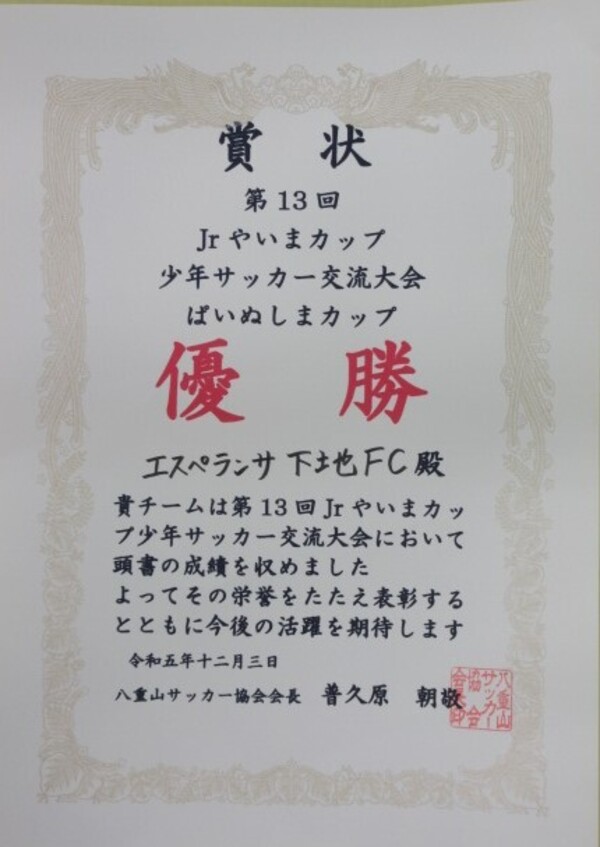 賞状
第13回
Jrやいまカップ
少年サッカー交流大会
ぱいぬしまカップ
優勝
エスペランサ 下地FC殿
貴チームは第13回Jrやいまカッ
プ少年サッカー交流大会において
頭書の成績を収めました
よってその栄誉をたたえ表彰する
とともに今後の活躍を期待します
令和五年十二月三日
八重山サッカー協会会長 普久原 朝敬
八重山
サッカー
協会
会長印